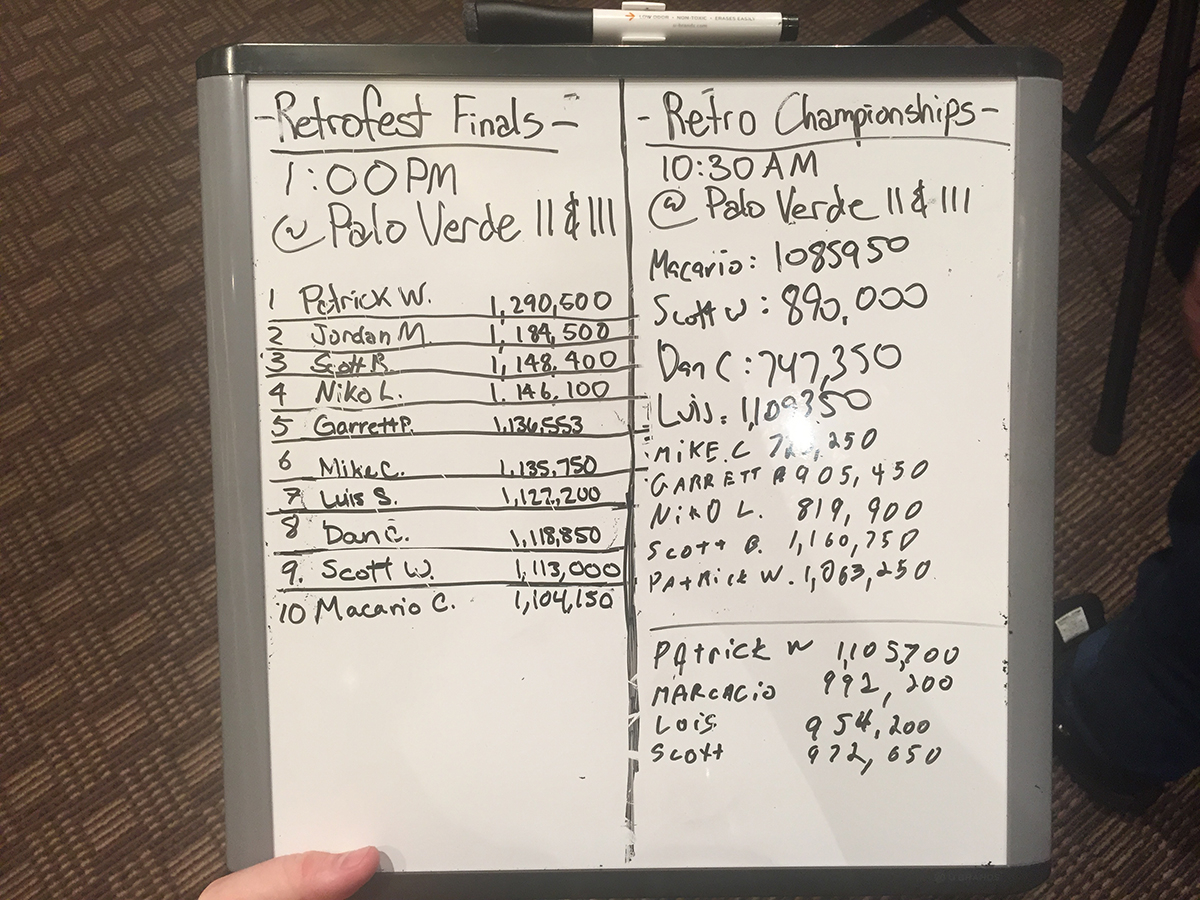 LOW ODOR • NON-TOXIC • ERASES EASILY
-Retrofest Finals-
1:00PM
@ Palo Verde II & III
1 Patrick W. 1,290,500
2 Jordan M. 1,184,500
3 Scott B. 1,148,400
4 Niko L. 1,146,100
5 Garrett P. 1,136,553
6 Mike C. 1,135,750
7 Luis S. 1,122,200
8 Dan C. 1,118,850
9. Scott W. 1,113,000
10 Macario C. 1,104,150
-Retro Championships-
10:30 AM
@ Palo Verde II & III
Macario: 1085950
Scott W: 890,000
Dan C: 747,350
Luis: 1,109350
MIKE. C
GARRETT 905,450
NIKO L. 819,900
Scott B. 1,160,750
PAtRick W. 1,063,250
PAtrick W 1,105,700
MARCACIO 992,200
Lois 954,200
Scott 972,650